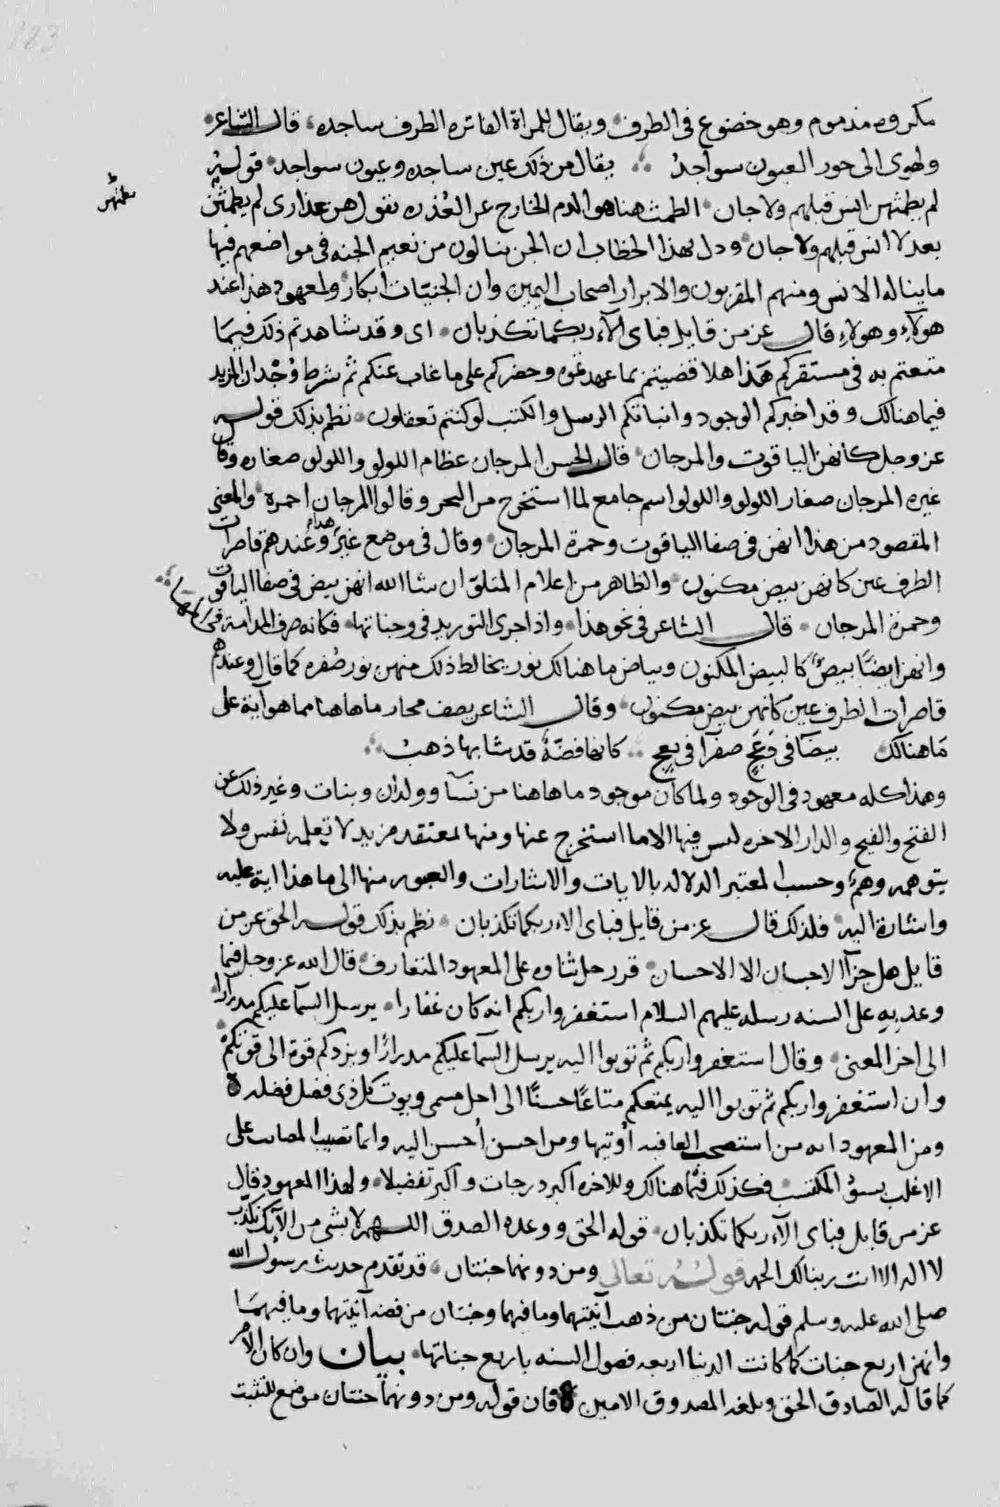 183
مكروه مذموم وهو خضوع فى الطرف ويقال للمراة الفاتره الطرف ساجده، قال الشاعر
ولهوى الى حور العيون سواجد ∴ يقال من ذلك عين ساجده وعيون سواجد قوله
لم يطمثهن انس قبلهم ولا جان الطمث هنا هو الدم الخارج عن العذره يقول هن عذارى لم يطمثهن
بعد لا انس قبلهم ولا جان ودل بهذا الخطاب ان الجن ينالون من نعيم الجنه فى مواضعهم فيها
ما يناله الانس ومنهم المقربون والابرار اصحاب اليمين وان الجنيّات ابكار ولمعهود هذا عند
هولآء وهولآء قال عز من قايل فباى الآء ربكما تكذبان اى وقد شاهدتم ذلك فيما
متعتم به فى مستقركم هذا هلا قضيتم بما عهدتموه وحضركم على ما غاب عنكم ثم شرط وُجْدان المزيد
فيما هنالك وقد اخبركم الوجود وانباتكم الرسل والكتب لو كنتم تعقلون نظم بذلك قوله
عز وجل كانهن الياقوت والمرجان قال الحسن المرجان عظام اللولو واللولو صغاره وقال
غيره المرجان صغار اللولو واللولو اسم جامع لما استخرج من البحر وقالوا المرجان احمره والمعنى
المقصود من هذا انهن فى صفا الياقوت وحمرة المرجان وقال فى موضع غير هذا وعندهم قاصرات
الطرف عين كانهن بيض مكنون والظاهر من اعلام المتلوّ ان شا الله انهن بيض فى صفا الياقوت
وحمرة المرجان قال الشاعر فى نحو هذا واذا جرى التوريد فى وجناتها فكانه صرف المدامة فى المها
وانهن ايضًا بيضٌ كالبيض المكنون وبياض ما هنالك نور يخالط ذلك منهن نور صفره كما قال وعندهم
قاصرات الطرف عين كانهن بيض مكنون وقال الشاعر يصف محار ما هاهنا مما هو آية على
مَا هنالك بيضآ فى دَعَجٍ صفرآ فى نعجٍ ∴ كانها فضّةٌ قد شابها ذهبُ ∴
وهذا كله معهود فى الوجود ولما كان موجود ما هاهنا من نسآ وولدان وبنات وغير ذلك عن
الفتح والفيح والدار الاخره ليس فيها الا ما استخرج عنها ومنها لمعتقد مزيد لا تعلمه نفس ولا
يتوهمه وهمٌ وحسب المعتبر الدلاله بالايات والاشارات والعبور منها الى ما هذا اية عليه
واشارة اليه فلذلك قال عز من قايل فباى الاء ربكما تكذبان نظم بذلك قوله الحق عز من
قايل هل جزآ الاحسان الا الاحسان قرر جل ثناوه على المعهود المتعارف قال الله عز وجل فيما
وعد به على السنه رسله عليهم السلام استغفروا ربكم انه كان غفارا يرسل السمآ عليكم مدرارا
الى اخر المعنى وقال استغفروا ربكم ثم توبوا اليه يرسل السمآ عليكم مدرارًا ويزدكم قوة الى قوتكمْ
وان استغفروا ربكم ثم توبوا اليه يمتعكم متاعًا حسنًا الى اجل مسمى ويوت كل ذى فضل فضله
ومن المعهود انه من استصحب العافيه أوتيها ومن احسن أُحسن اليه وانما تصيب المصائب على
الاغلب بسوْ المكتسب فكذلك فيما هنالك وللاخره اكبر درجات واكبر تفضيلا ولهذا المعهود قال
عز من قايل فباى الآء ربكما تكذبان قوله الحق ووعده الصدق اللهم لا بشى من الآيك نكذّب
لا اله الا انت ربنا لك الحمد قوله تعالى ومن دونهما جنتان قد تقدم حديث رسول الله
صلى الله عليه وسلم قوله جنتان من ذهب آنيتهما وما فيهما وجنتان من فضه آنيتهما وما فيهمَا
وانهن اربع جنات كما كانت الدنيا اربعه فصول السنه باربع جناتها بيان وان كان الامر
كما قاله الصادق الحق وبلغه المصدوق الامين فان قوله ومن دونهما جنتان موضع للتثبت